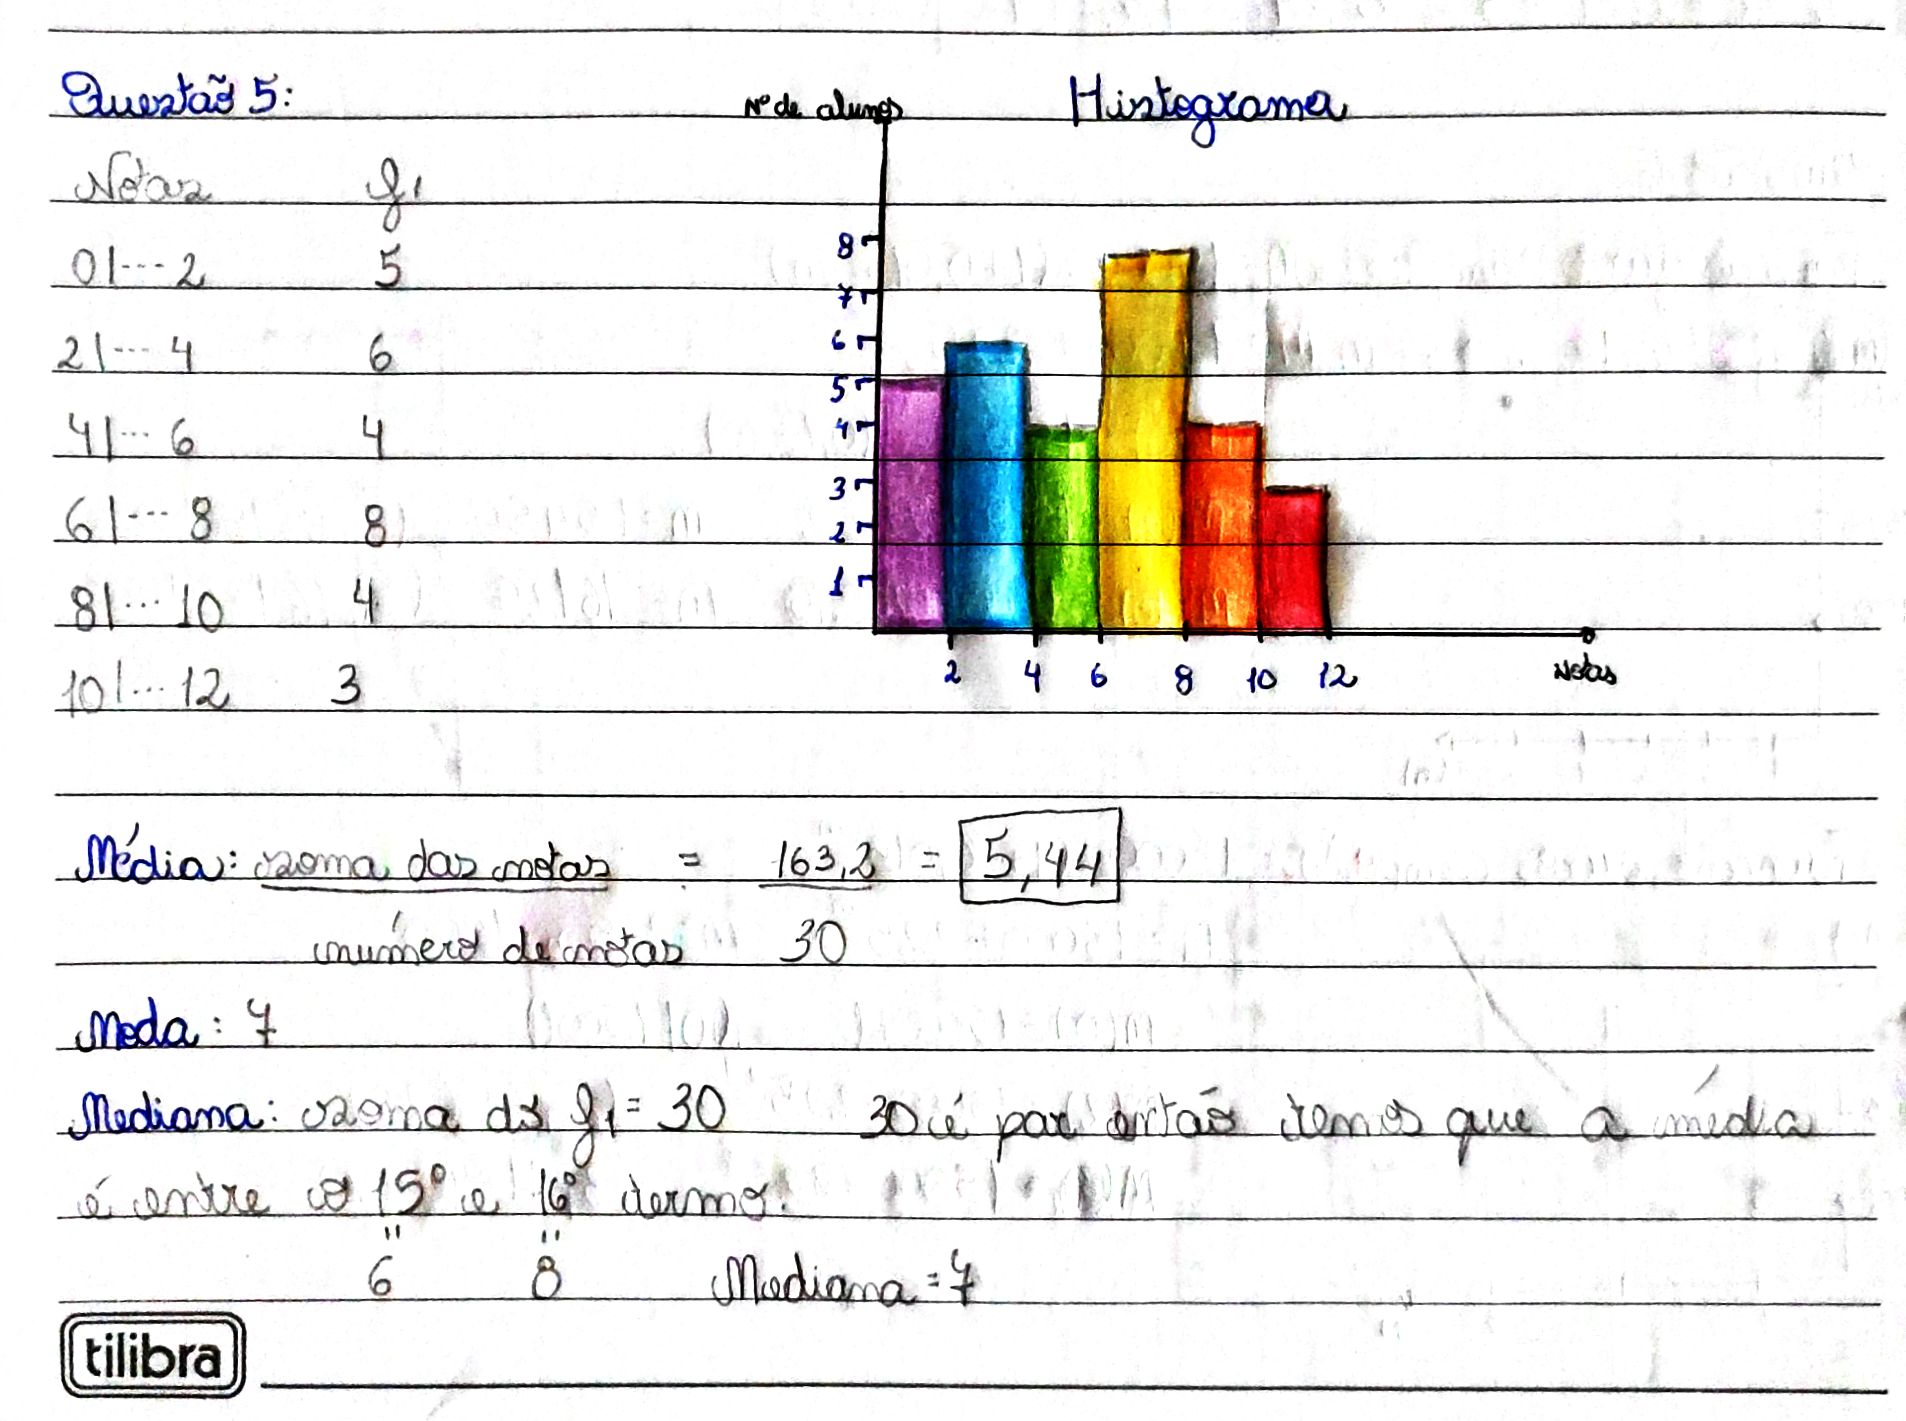 Questão 5:
Notas f1
0|--- 2 5
2|--- 4 6
4|--- 6 4
6|--- 8 8
8|--- 10 4
10|--- 12 3
Histograma
Nº de alunos
8
7
6
5
4
3
2
1
2 4 6 8 10 12
Notas
Média: soma das notas = 163,2 = 5,44
número de notas 30
Moda: 7
Mediana: soma da f1 = 30 30 é par então temos que a média
é entre o 15º e 16º termo.
" "
6 8 Mediana = 7
tilibra